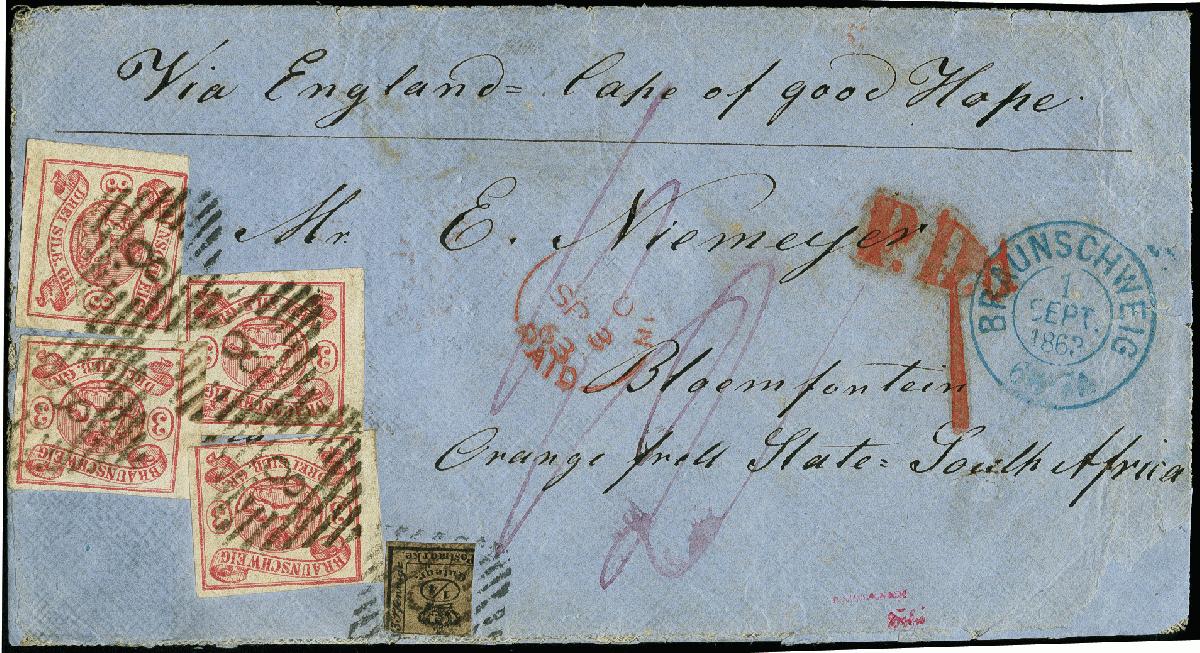 Via England = Cape of good Hope.
Mr. E. Niemeyer
Bloemfontein
Orange free State = South Africa
P.D.
1
BRAUNSCHWEIG
1.
SEPT.
1863
PAID
SP 3
63
3 BRAUNSCHWEIG 3
3 DREI SILB. GR. 3
8
3 BRAUNSCHWEIG 3
3 DREI SILB. GR. 3
8
3 BRAUNSCHWEIG 3
3 DREI SILB. GR. 3
8
3 BRAUNSCHWEIG 3
3 DREI SILB. GR. 3
8
Postmarke
1/4